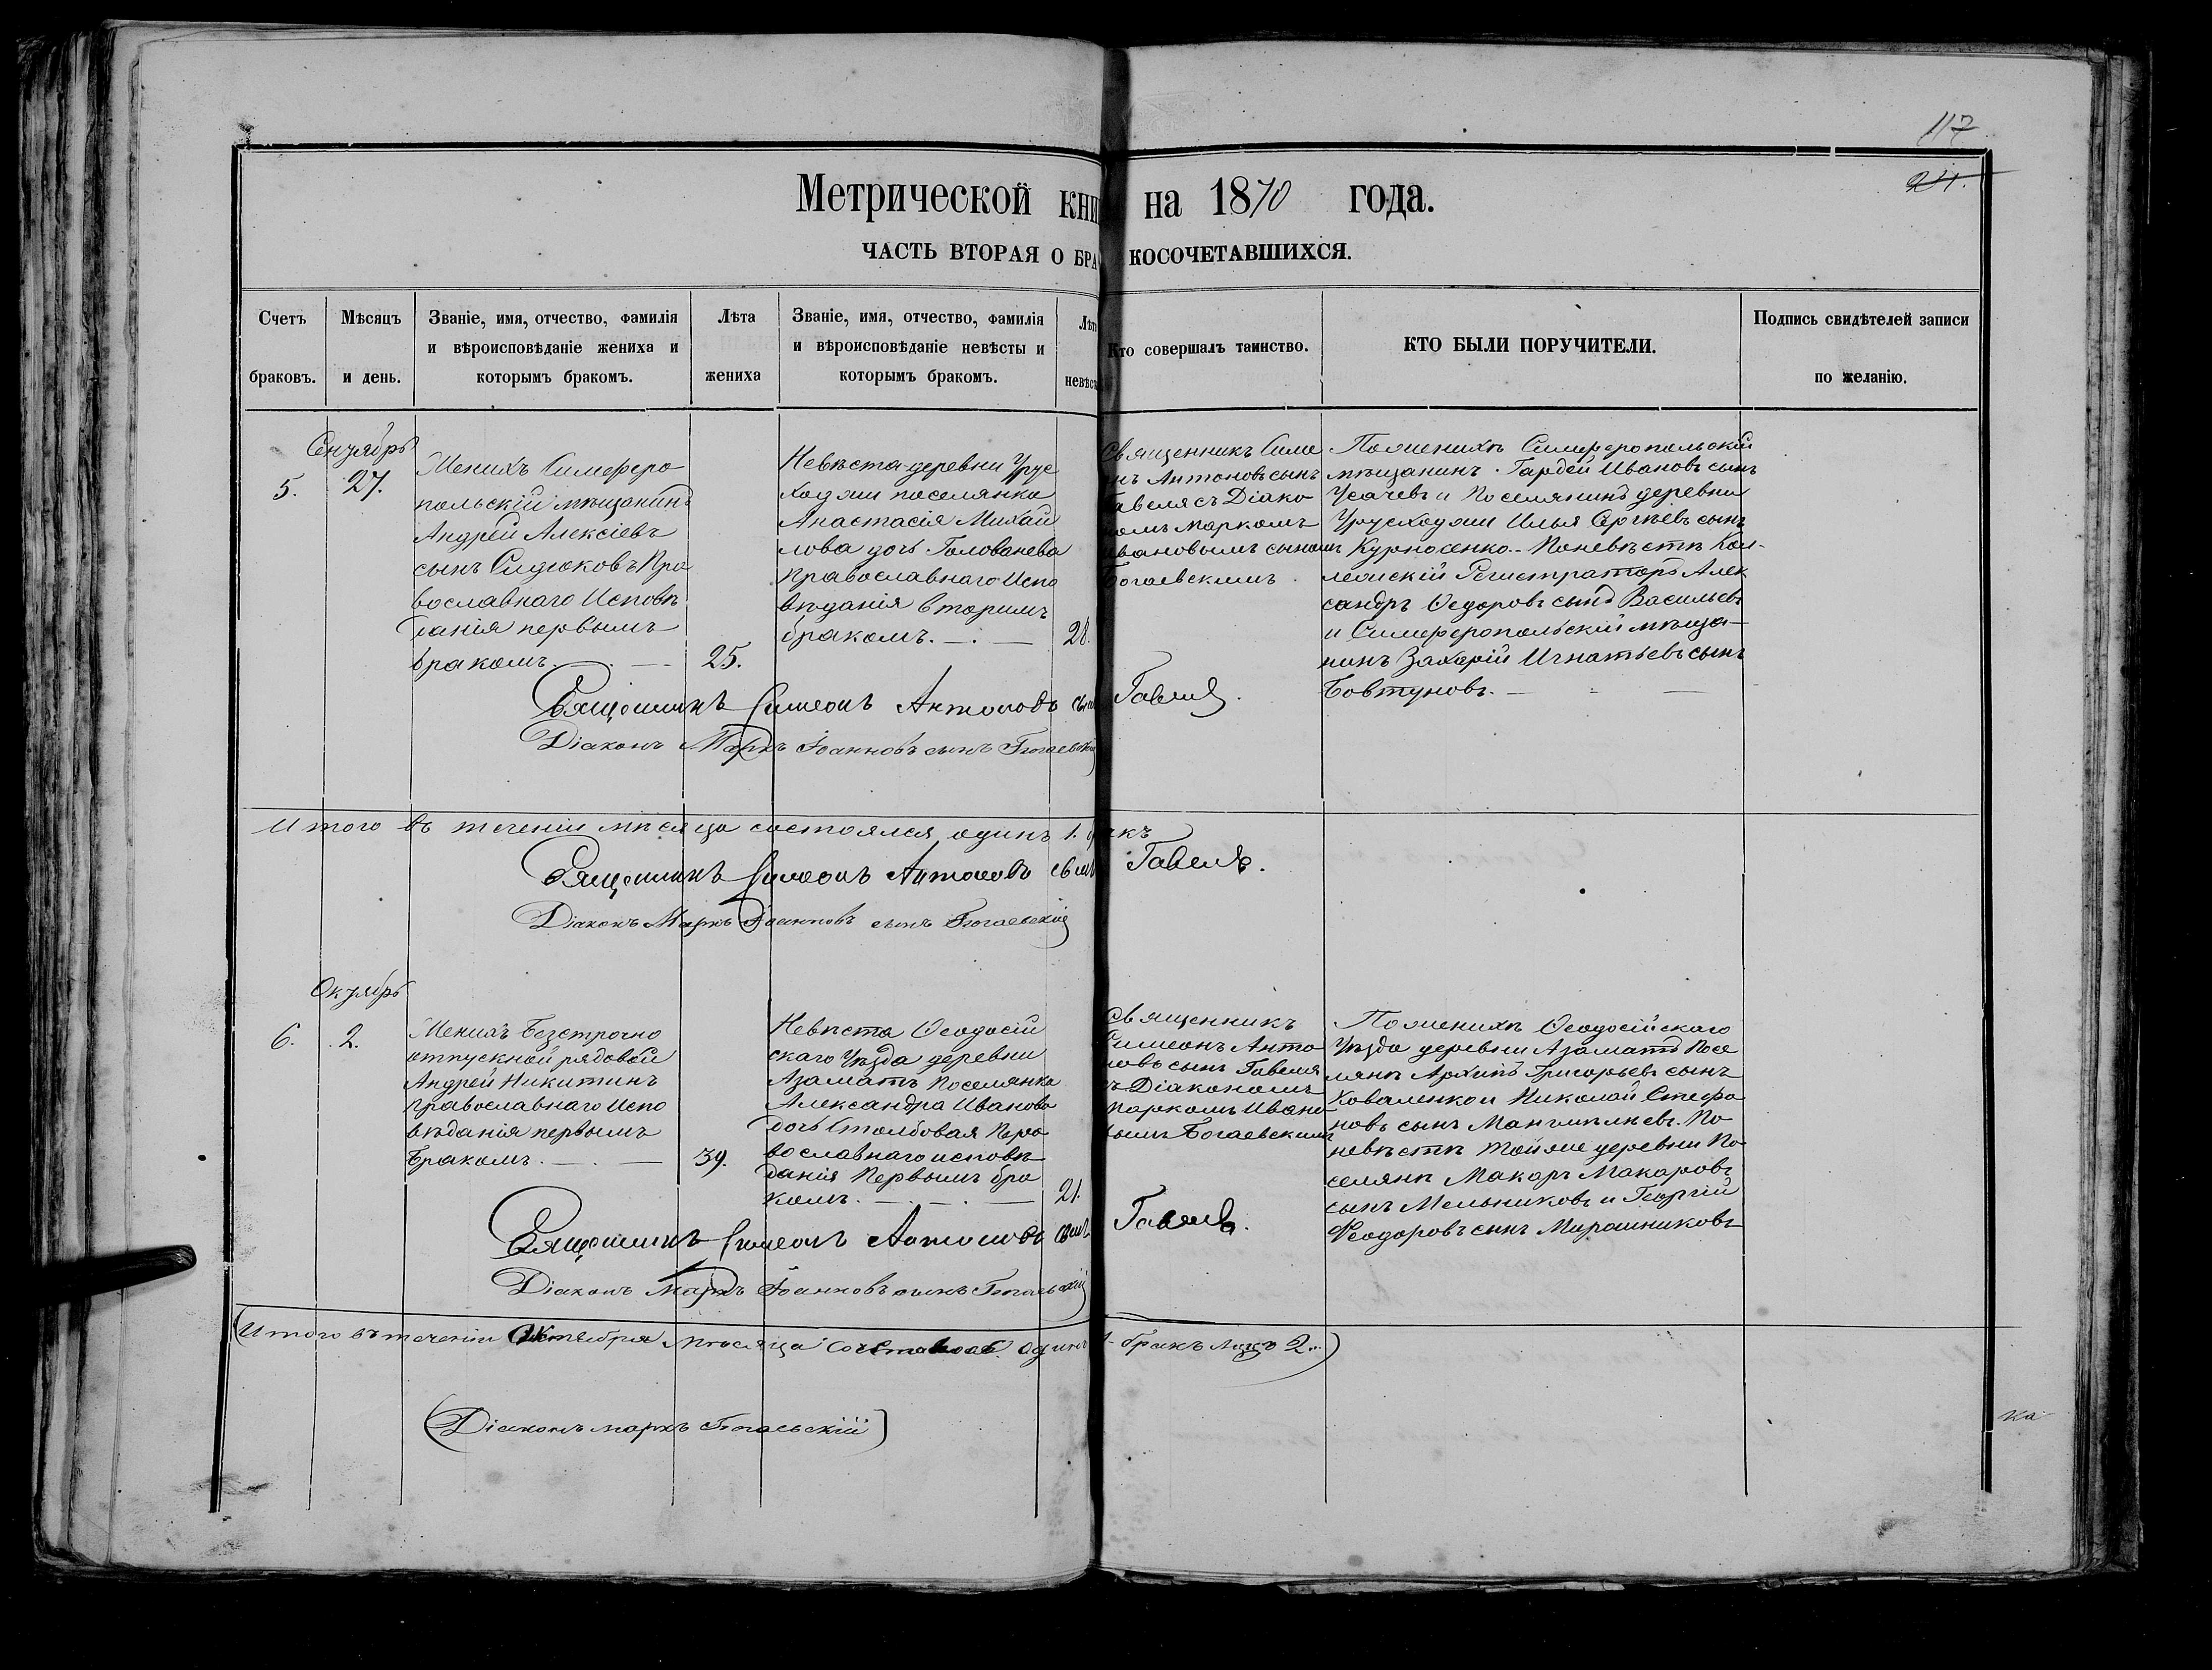 117
Метрической кни на 1870 года.
ЧАСТЬ ВТОРАЯ О БРА КОСОЧЕТАВШИХСЯ.
Счетъ
браковъ.
Мѣсяцъ
и день.
Званіе, имя, отчество, фамилія
и вѣроисповѣданіе жениха и
которымъ бракомъ.
Лѣта
жениха
Званіе, имя, отчество, фамилія
и вѣроисповѣданіе невѣсты и
которымъ бракомъ.
Лѣт
невѣс
Кто совершалъ таинство.
КТО БЫЛИ ПОРУЧИТЕЛИ.
Подпись свидѣтелей записи
по желанію.
Сентябрь
5.
27.
Женихъ Симферо
польскій мѣщанинъ
Андрей Алексіевъ
сынъ Сидюковъ Пра
вославнаго Исповѣ
данія первымъ
бракомъ.
25.
Невѣста деревни Урус
Ходжи поселянка
Анастасія Михай
лова дочь Голованева
православнаго Испо
вѣданія Вторымъ
бракомъ.
28.
Священникъ Симе
нъ Антоновъ сынъ
Гавеля съ Діако
номъ Маркомъ
Ивановымъ сыномъ
Богаевскимъ
По женихѣ Симферопольскій
мѣщанинъ Гардей Ивановъ сынъ
Усачевъ и Поселянинъ деревни
Урусходжи Илья Сергѣевъ сынъ
Курносенко. По невѣстѣ Кол-
лежскій Регистраторъ Алек
сандръ Ѳедоровъ сынъ Васильевъ
и Симферопольскій мѣща-
нинъ Захарій Игнатьевъ сынъ
Бовтуновъ.
Священникъ Симеонъ Антоновъ сын Гавеля.
Діаконъ Маркъ Іоанновъ сынъ Богаевскій
Итого въ теченіи мѣсяца состоялся одинъ 1. бракъ
Священникъ Симеонъ Антоновъ сынъ Гавеля.
Діаконъ Маркъ Іоанновъ сынъ Богаевскій
Октябрь
6.
2.
Женихъ Безсрочно
отпускной рядовой
Андрей Никитинъ
православнаго Испо
вѣданія первымъ
Бракомъ.
39.
Невѣста Ѳеодосій
скаго Уѣзда деревни
Азаматъ Поселянка
Александра Иванова
дочь Столбовая Пра
вославнаго исповѣ
данія Первымъ бра
комъ.
21.
Священникъ
Симеонъ Анто
новъ сынъ Гавеля
съ Діакономъ
Маркомъ Ивано
вымъ Богаевскимъ
По женихѣ Ѳеодосійскаго
Уѣзда деревни Азаматъ Посе
лянѣ Архипъ Григорьевъ сынъ
Коваленко и Николай Стефа
новъ сынъ По
невѣстѣ той же деревни По
селянѣ Макаръ Макаровъ
сынъ Мельниковъ и Георгій
Феодоровъ сынъ Мирошниковъ
Священникъ Симеонъ Антоновъ сынъ Гавеля.
Діаконъ Маркъ Іоанновъ сынъ Богаевскій
(Итого въ теченіи Октября мѣсяца одинъ 1 бракъ лицъ 2...)
(Діаконъ Маркъ Богаевскій)
ка